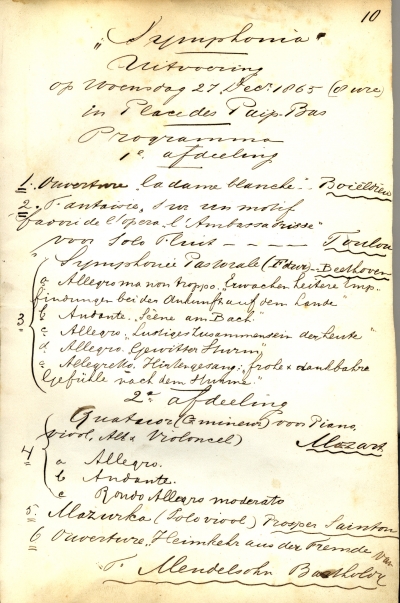 10
„Symphonia"
Uitvoering
op Woensdag 27 Dec. 1865 (8 ure)
in Place des Paijs-Bas
Programma
1e afdeeling
1. Ouverture „la dame blanche" - Boiëldieu
2. Fantaisie, sur un motif
favori de l'opera „l'Ambassadrisse"
voor Solo Fluit - - - - - Toulou
3
Symphonie Pastorale (F dur) - Beethoven
a Allegro ma non troppo. „Erwachen heitere Emp-
findungen bei der Ankunft auf dem Lande"
b Andante. „Scène am Bach"
c Allegro. „Lustiges Zusammensein der Leute"
d. Allegro. Gewitter Sturm"
e Allegretto. Hirtengesang: frohe & dankbahre
Gefühle nach dem Sturme"
2e afdeeling
4
Quatuor (G mineur) voor Piano,
viool, Alt & Violoncel) Mozart.
a Allegro.
b Andante.
c Rondo Allegro moderato
5. Mazurka (Solo viool) Prosper Sainton
6 Ouverture „Heimkehr aus der Fremde" van
F. Mendelsohn Bartholdy